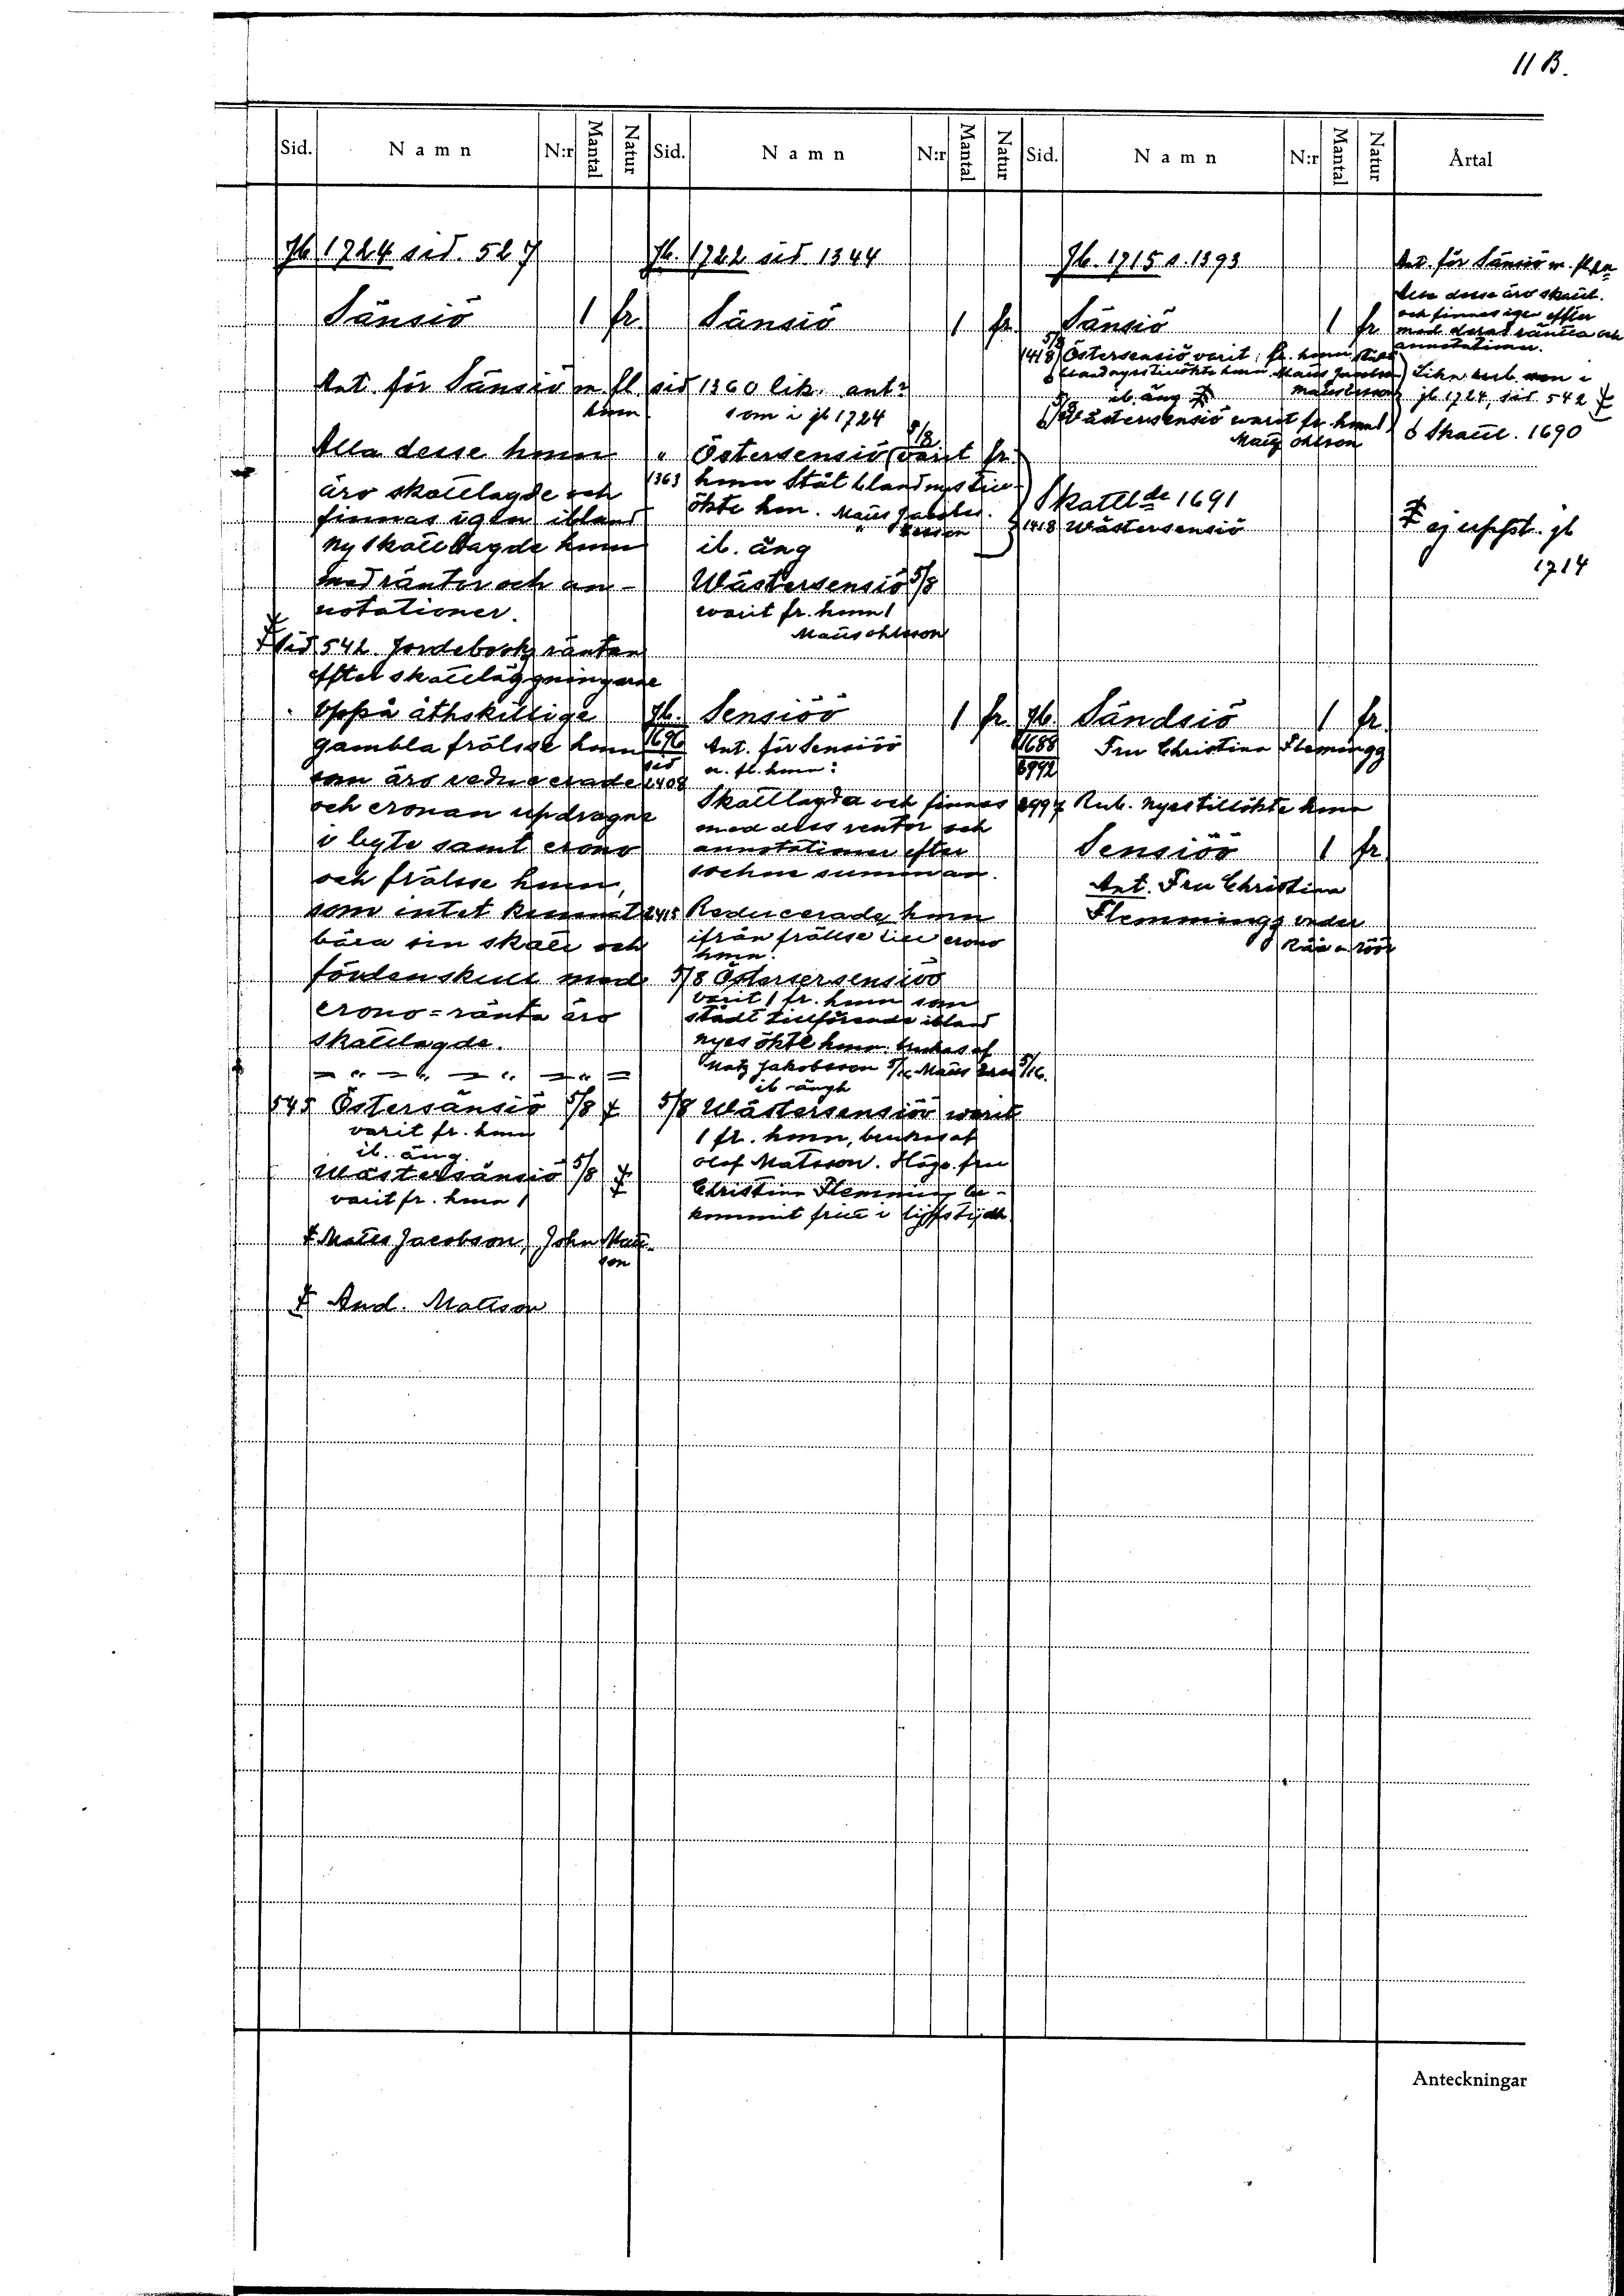 11 B.
Sid. Namn N:r Mantal Natur Sid. Namn N:r Mantal Natur Sid. Namn N:r Mantal Natur Årtal
Jb 1724 sid. 527
Sänsiö 1 fr.
Ant. för Sänsiö m. fl.
hmn
Alla desse hmn
äro skattlagde och
finnas igen ibland
ny skattlagde hmn
med räntor och an-
notationer.
sid 542. Jordeboks räntan
efter skattläggningarne
Oppå åthskillige
gambla frälsse hmn
som äro reducerade
och cronan updragne
i byte samt crono
och frälsse hmn,
som intet kunnat
bära sin skatt och
fördenskull med
crono-ränta äro
skattlagde.
545 Östersänsiö 5/8 ⨍
varit fr. hmn
ib. äng.
Wästersänsiö 5/8
varit fr. hmn 1
Mattes Jacobson, John Matt-
son
And. Mattson
Jb. 1722 sid 1344
Sänsiö 1 fr.
sid 1360 lik. ant:
som i jb 1724
" Östersensiö 5/8 varit fr.
1363 hmn Stät bland nys till-
ökte hmn.
ib. äng
Wästersensiö 5/8
warit fr. hmn 1
Mats ohlsson
Jb. 1696 Sensiöö 1 fr
Ant. för Sensiöö
m. fl. hmn:
sid 1408
Skattlagda och finnas
med dess rentor och
annotationer efter
sochne summan.
1415 Reducerade hmn
ifrån frällse till crono
hmn.
5/8 Östersensiöö
varit 1 fr. hmn som
städt tillförende ibland
nyes ökte hmn. brukas af
Matz Jakobsson 5/16
ib ängh
5/8 Wästersensiöö warit
1 fr. hmn, brukas af
Olof Matsson. Högo. fru
Christina Flemming be-
kommit fritt i lijfstijdh
Jb. 1715 s. 1393
Sänsiö 1 fr
1418 5/8 Östersensiö varit fr. hmn
ib. äng
5/8 Wästersensiö warit fr. hmn 1
Matz Ohlson
Skattl.de 1691
1418 Wästersensiö
Jb. 1688 Sändsiö 1 fr.
Fru Christina Flemingg
6992
6997 Rub. nyes tillökte hmn
Sensiöö 1 fr
Ant. Fru Christina
Flemmingz under
Råå o röör
Ant. för Sänsiö m. fl.
Alla desse äro skattl.
och finnes igen effter
med deras räntta och
annotationer.
jb 1724, sid. 542
Skattl. 1690
ej uppst. jb
1714
Anteckningar